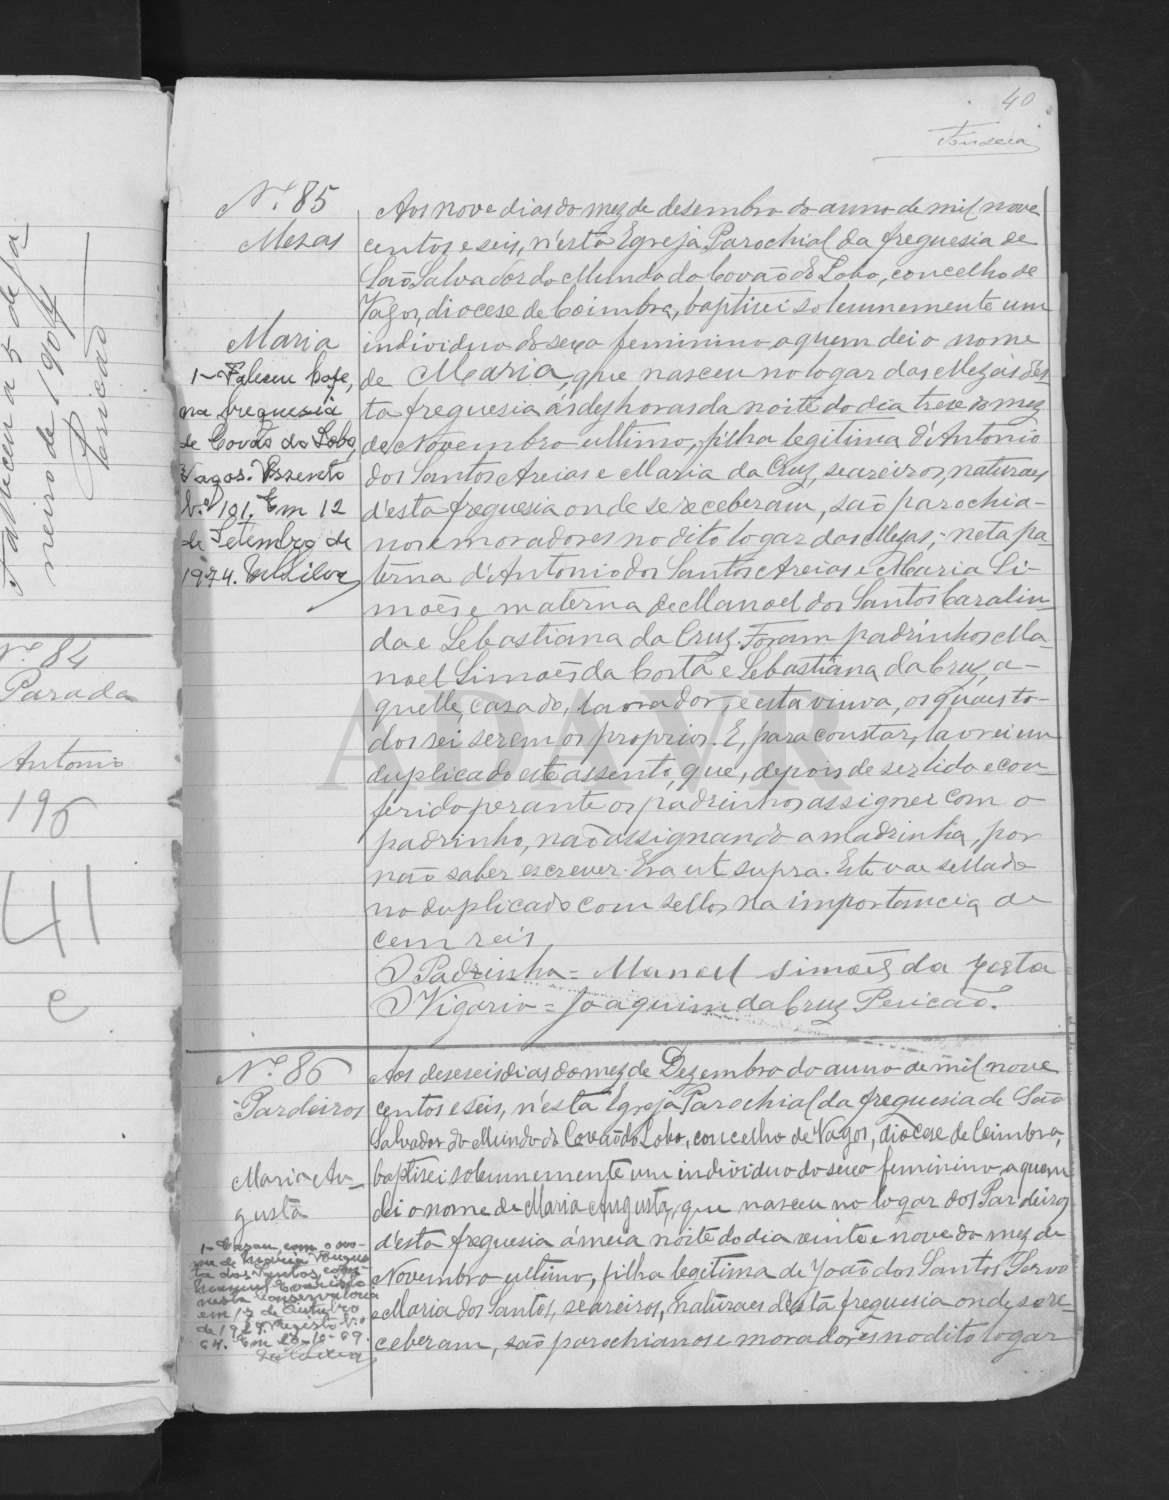 40
Fonseca
Falleceu a 5 de Ja
neiro de 1907
Pericão
Nº 84
Parada
Antonio
196
41
e
Nº 85
Mezas
Maria
1- Faleceu hoje,
na freguesia
de Covão do Lobo,
Vagos. Assento
n.º 191. Em 12
de Setembro de
1974.
Aos nove dias do mez de desembro do anno de mil nove
centos e seis, n'esta Egreja Parochial da freguesia de
São Salvador do Mundo do Covão do Lobo, concelho de
Vagos, diocese de Coimbra, baptisei solemnemente um
individuo do sexo feminino a quem dei o nome
de Maria, que nasceu no logar das Mezas des
ta freguesia ás dez horas da noite do dia treze do mez
de Novembro ultimo, filha legitima d'Antonio
dos Santos Areias e Maria da Cruz, seareiros, naturaes
d'esta freguesia onde se receberam, são parochia-
nos e moradores no dito logar das Mezas; neta pa-
terna d'Antonio dos Santos Areias e Maria Si-
mões e materna de Manoel dos Santos Caralin-
da e Sebastiana da Cruz. Foram padrinhos Ma
noel Simões da Costa e Sebastiana da Cruz, a-
quelle, casado, lavrador, e esta viuva, os quaes to-
dos sei serem os proprios. E, para constar, lavrei em
duplicado este assento, que, depois de ser lido e con-
ferido perante os padrinhos assignei com o
padrinho, não assignando a madrinha, por
não saber escrever. Era ut supra. Este vae sellado
no duplicado com sellos na importancia de
cem reis.
O Padrinho = Manoel Simões da Costa
O Vigario = Joaquim da Cruz Pericão.
ADAVR
Nº 86
Pardeiros
Maria Au-
gusta
1- Casou com
nesta Conservatoria
em 13 de Outubro
de 1927. Registo n.º
64. Em
Aos deseseis dias do mez de Dezembro do anno de mil nove
centos e seis, n'esta Egreja Parochial da freguesia de São
Salvador do Mundo do Covão do Lobo, concelho de Vagos, diocese de Coimbra,
baptisei solemnemente um individuo do sexo feminino, a quem
dei o nome de Maria Augusta, que nasceu no logar dos Pardeiros
d'esta freguesia á meia noite do dia vinte e nove do mez de
Novembro ultimo, filha legitima de João dos Santos Servo
e Maria dos Santos, seareiros, naturaes d'esta freguesia onde se re-
ceberam, são parochianos e moradores no dito logar